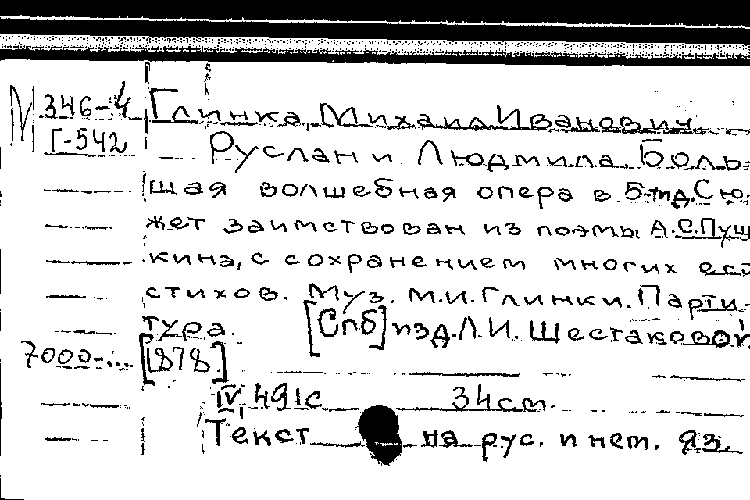 М 346-4 Глинка, Михаил Иванович.
Г-542 Руслан и Людмила. Боль-
шая волшебная опера в 5-тид. Сю-
жет заимствован из поэмы А.С.Пуш-
кина, с сохранением многих его
стихов. Муз. М.И.Глинки. Парти-
тура. [Спб] изд. Л.И. Шестаковой
7000-... [1878.]
IV, 491с 34см.
Текст на рус. и нем. яз.